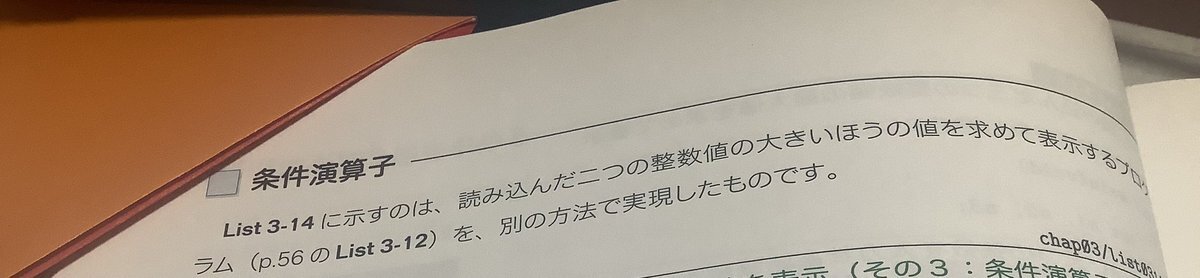 条件演算子
List 3-14 に示すのは、読み込んだ二つの整数値の大きいほうの値を求めて表示するプログ
ラム（p.56 の List 3-12）を、別の方法で実現したものです。
chap03/list03
を表示（その3：条件演算